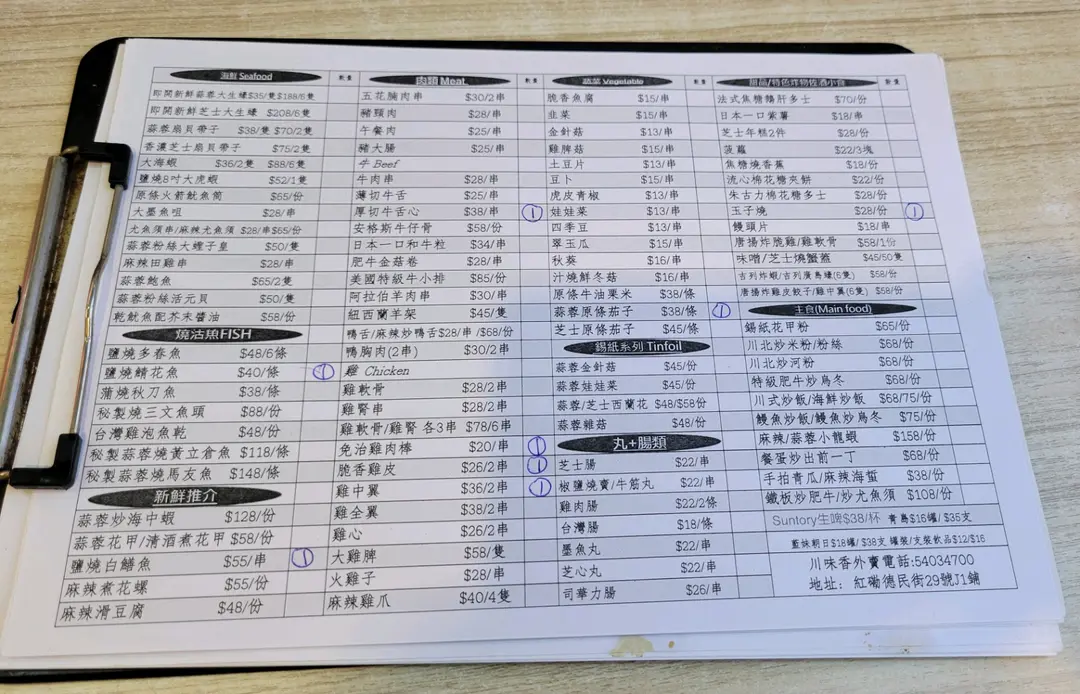 海鮮 Seafood 數量
即開新鮮蒜蓉大生蠔$35/隻$188/6隻
即開新鮮芝士大生蠔 $208/6隻
蒜蓉扇貝帶子 $38/隻 $70/2隻
香濃芝士扇貝帶子 $75/2隻
大海蝦 $36/2隻 $88/6隻
鹽燒8吋大虎蝦 $52/1隻
原條火箭魷魚筒 $65/份
大墨魚咀 $28/串
尤魚須串/麻辣尤魚須 $28/串$65/份
蒜蓉粉絲大蟶子皇 $50/隻
麻辣田雞串 $28/串
蒜蓉鮑魚 $65/2隻
蒜蓉粉絲活元貝 $50/隻
乾魷魚配芥末醬油 $58/份
燒沽魚FISH
鹽燒多春魚 $48/6條
鹽燒鯖花魚 $40/條 1
蒲燒秋刀魚 $38/條
秘製燒三文魚頭 $88/份
台灣雞泡魚乾 $48/份
秘製蒜蓉燒黃立倉魚 $118/條
秘製蒜蓉燒馬友魚 $148/條
新鮮推介
蒜蓉炒海中蝦 $128/份
蒜蓉花甲/清酒煮花甲 $58/份
鹽燒白鱔魚 $55/串 1
麻辣煮花螺 $55/份
麻辣滑豆腐 $48/份
肉類 Meat 數量
五花腩肉串 $30/2串
豬頸肉 $28/串
午餐肉 $25/串
豬大腸 $25/串
牛 Beef
牛肉串 $28/串
薄切牛舌 $25/串
厚切牛舌心 $38/串 1
安格斯牛仔骨 $58/份
日本一口和牛粒 $34/串
肥牛金菇卷 $28/串
美國特級牛小排 $85/份
阿拉伯羊肉串 $30/串
紐西蘭羊架 $45/隻
鴨舌/麻辣炒鴨舌$28/串 /$68/份
鴨胸肉(2串) $30/2串
雞 Chicken
雞軟骨 $28/2串
雞腎串 $28/2串
雞軟骨/雞腎 各3串 $78/6串
免治雞肉棒 $20/串 1
脆香雞皮 $26/2串 1
雞中翼 $36/2串 1
雞全翼 $38/2串
雞心 $26/2串
大雞脾 $58/隻
火雞子 $28/串
麻辣雞爪 $40/4隻
蔬菜 Vegetable 數量
脆香魚腐 $15/串
韭菜 $15/串
金針菇 $13/串
雞脾菇 $15/串
土豆片 $13/串
豆卜 $15/串
虎皮青椒 $13/串
娃娃菜 $13/串
四季豆 $13/串
翠玉瓜 $15/串
秋葵 $16/串
汁燒鮮冬菇 $16/串
原條牛油粟米 $38/條
蒜蓉原條茄子 $38/條 1
芝士原條茄子 $45/條
錫紙系列 Tinfoil
蒜蓉金針菇 $45/份
蒜蓉娃娃菜 $45/份
蒜蓉/芝士西蘭花 $48/$58份
蒜蓉雜菇 $48/份
丸+腸類
芝士腸 $22/串
椒鹽燒賣/牛筋丸 $22/串
雞肉腸 $22/2條
台灣腸 $18/條
墨魚丸 $22/串
芝心丸 $22/串
司華力腸 $26/串
甜品/特色炸物佐酒小食 數量
法式焦糖鵝肝多士 $70/份
日本一口紫薯 $18/串
芝士年糕2件 $28/份
菠蘿 $22/3塊
焦糖燒香蕉 $18/份
流心棉花糖夾餅 $22/份
朱古力棉花糖多士 $28/份
玉子燒 $28/份 1
饅頭片 $18/串
唐揚炸脆雞/雞軟骨 $58/1份
味噌/芝士燒蟹蓋 $45/50隻
吉列炸蝦/吉列廣島蠔(6隻) $58/份
唐揚炸雞皮餃子/雞中翼(6隻) $58/份
主食(Main food)
錫紙花甲粉 $65/份
川北炒米粉/粉絲 $68/份
川北炒河粉 $68/份
特級肥牛炒烏冬 $68/份
川式炒飯/海鮮炒飯 $68/75/份
鰻魚炒飯/鰻魚炒烏冬 $75/份
麻辣/蒜蓉小龍蝦 $158/份
餐蛋炒出前一丁 $68/份
手拍青瓜/麻辣海蜇 $38/份
鐵板炒肥牛/炒尤魚須 $108/份
Suntory生啤$38/杯 青島$16罐/ $35支
藍妹朝日$18罐/ $38支 罐裝/支裝飲品$12/$16
川味香外賣電話:54034700
地址：紅磡德民街29號J1鋪